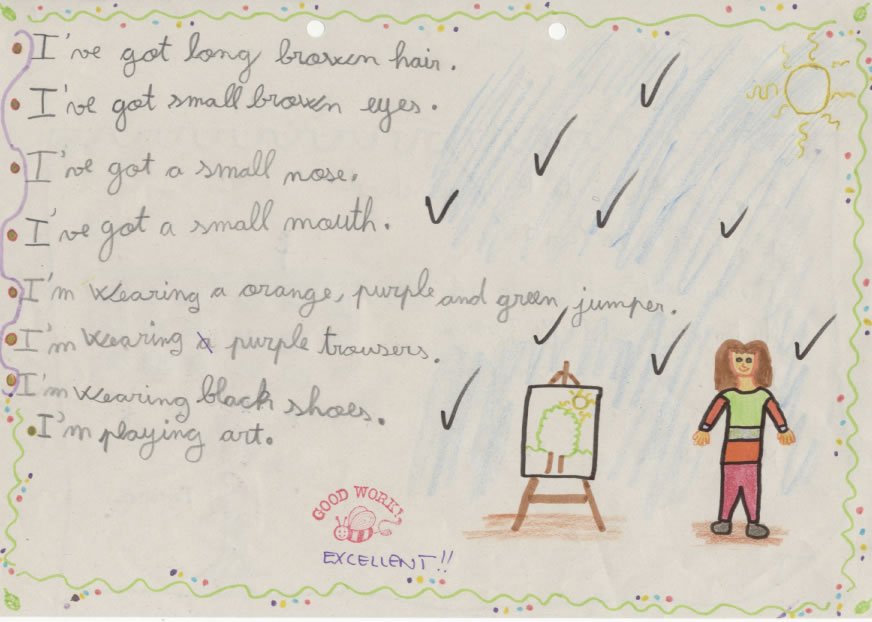 I've got long brown hair.
I've got small brown eyes.
I've got a small nose.
I've got a small mouth.
I'm wearing a orange, purple and green jumper.
I'm wearing a purple trousers.
I'm wearing black shoes.
I'm playing art.
GOOD WORK!
EXCELLENT!!